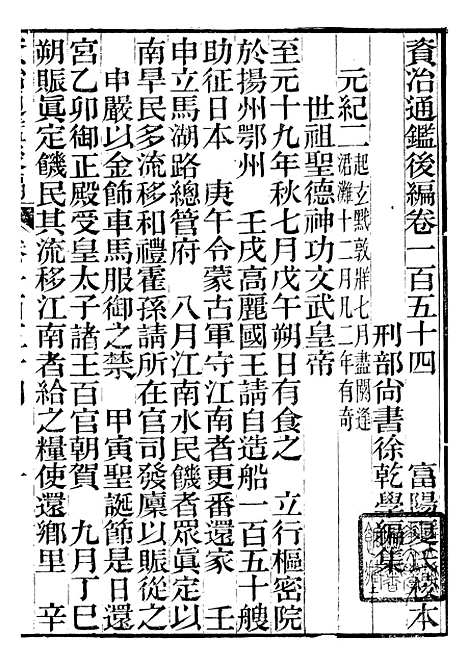 資治通鑑後編卷一百五十四　富陽夏氏校本
刑部尚書徐乾學編集
元紀二起玄黓敦牂七月盡閼逢涒灘十二月凡二年有奇
世祖聖德神功文武皇帝
至元十九年秋七月戊午朔日有食之　立行樞密院
於揚州鄂州　壬戌高麗國王請自造船一百五十艘
助征日本　庚午令蒙古軍守江南者更番還家　壬
申立馬湖路總管府　八月江南水民饑者眾眞定以
南旱民多流移和禮霍孫請所在官司發廩以賑從之
申嚴以金飾車馬服御之禁　甲寅聖誕節是日還
宮乙卯御正殿受皇太子諸王百官朝賀　九月丁巳
朔賑眞定饑民其流移江南者給之糧使還鄉里　辛